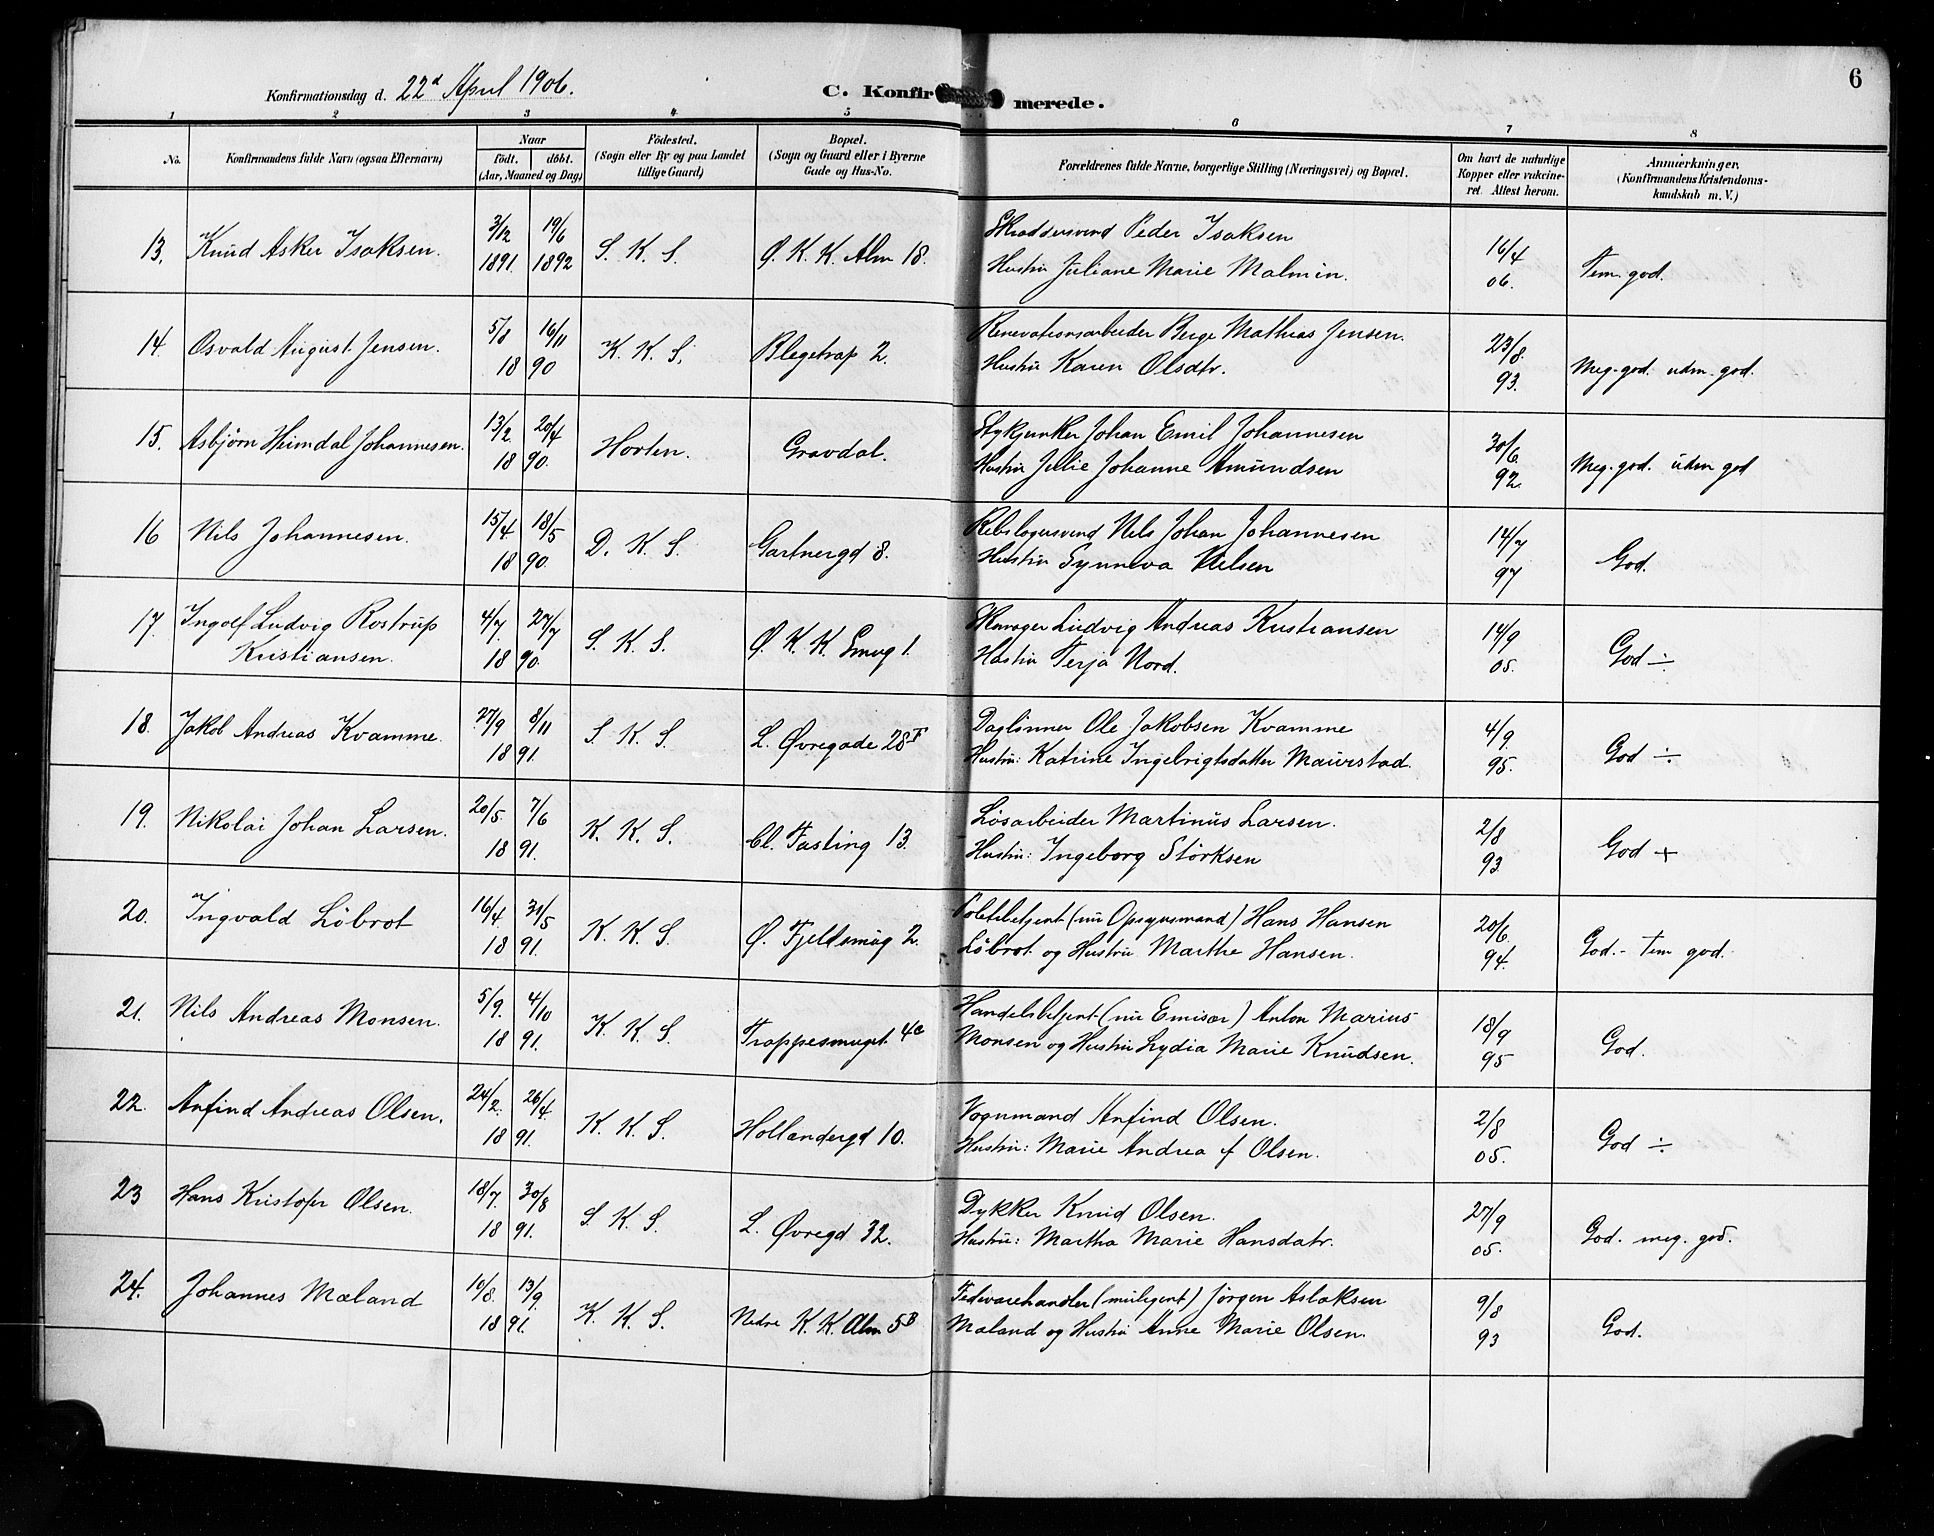 6
Konfirmationsdag d. 22d April 1906.
C. Konfirmerede.
1 2 3 4 5 6 7 8
No.
Konfirmandens fulde Navn (ogsaa Efternavn)
Naar
födt. döbt.
(Aar, Maaned og Dag)
Födested.
(Sogn eller By og paa Landet
tillige Gaard)
Bopæl.
(Sogn og Gaard eller i Byerne
Gade og Hus-No.
Forældrenes fulde Navne, borgerlige Stilling (Næringsvei) og Bopæl.
Om havt de naturlige
Kopper eller vakcine-
ret. Attest herom.
Anmærkninger.
(Konfirmandens Kristendoms-
kundskab m. V.)
13. Knud Asker Isaksen. 3/12 1891. 19/6 1892 S. K. S. Ø. K. K. Alm 18.
Skraddersvend Peder Isaksen
Hustru Juliane Marie Malmin.
16/4 06. Tem. god.
14. Osvald August Jensen. 5/8 16/11 1890 K. K. S. Blegetrap 2.
Renovationsarbeider Berge Mathias Jensen.
Hustru Karen Olsdtr.
23/8. 93. Meg. god. udm. god.
15. Asbjörn Heimdal Johannesen. 13/2 20/4 1890. Horten. Gravdal.
Stykjunker Johan Emil Johannesen
Hustru Jellie Johanne Amundsen
30/6. 92. Meg. god. udm god
16 Nils Johannesen. 15/4 18/5 1890. D. K. S. Gartnergd 8.
Rebslagersvend Nils Johan Johannesen
Hustru Synneva Nielsen
14/7 97 God.
17. Ingolf Ludvig Rostrup
Kristiansen. 4/7 27/7 1890. S. K. S. Ø. K. K. Smug 1.
Skomager Ludvig Andreas Kristiansen
Hustru Terja Nord.
14/9 05. God ÷
18. Jakob Andreas Kvamme. 27/9 8/11 1891. S. K. S. L. Øvregade 28
Daglönner Ole Jakobsen Kvamme
Hustru: Katrine Ingebrigtsdatter Maurstad.
4/9. 95. God ÷.
19. Nikolai Johan Larsen. 20/5 7/6 1891. K. K. S. Cl. Fasting 13.
Løsarbeider Martinus Larsen.
Hustru: Ingeborg Störksen
2/8 93. God +
20. Ingvald Löbrot 16/4. 31/5 1891. K. K. S. Ø. Fjeldsmug 2.
Politibetjent (nu Opsynsmand) Hans Hansen
Löbrot og Hustru Marthe Hansen.
20/6. 94. God. - Tem god.
21. Nils Andreas Monsen. 5/9. 4/10 1891. K. K. S. Trappesmuget 4a
Handelsbetjent (nu Emisær) Anton Marius
Monsen og Hustru Lydia Marie Knudsen.
18/9 95 God.
22. Anfind Andreas Olsen. 24/2. 26/4. 1891. K. K. S. Hollandergd 10.
Vognmand Anfind Olsen.
Hustru: Marie Andrea f Olsen.
2/8 05. God ÷
23 Hans Kristofer Olsen. 18/7. 30/8 1891. S. K. S. L. Øvregd 32.
Dykker Knud Olsen.
Hustru: Martha Marie Hansdatr.
27/9 05. God. meg. god.
24. Johannes Mæland 10/8. 13/9. 1891. K. K. S. Nedre K. K. Alm 5B
Fedevarehandler Jörgen Aslaksen
Mæland og Hustru Anne Marie Olsen.
9/8 93 God.